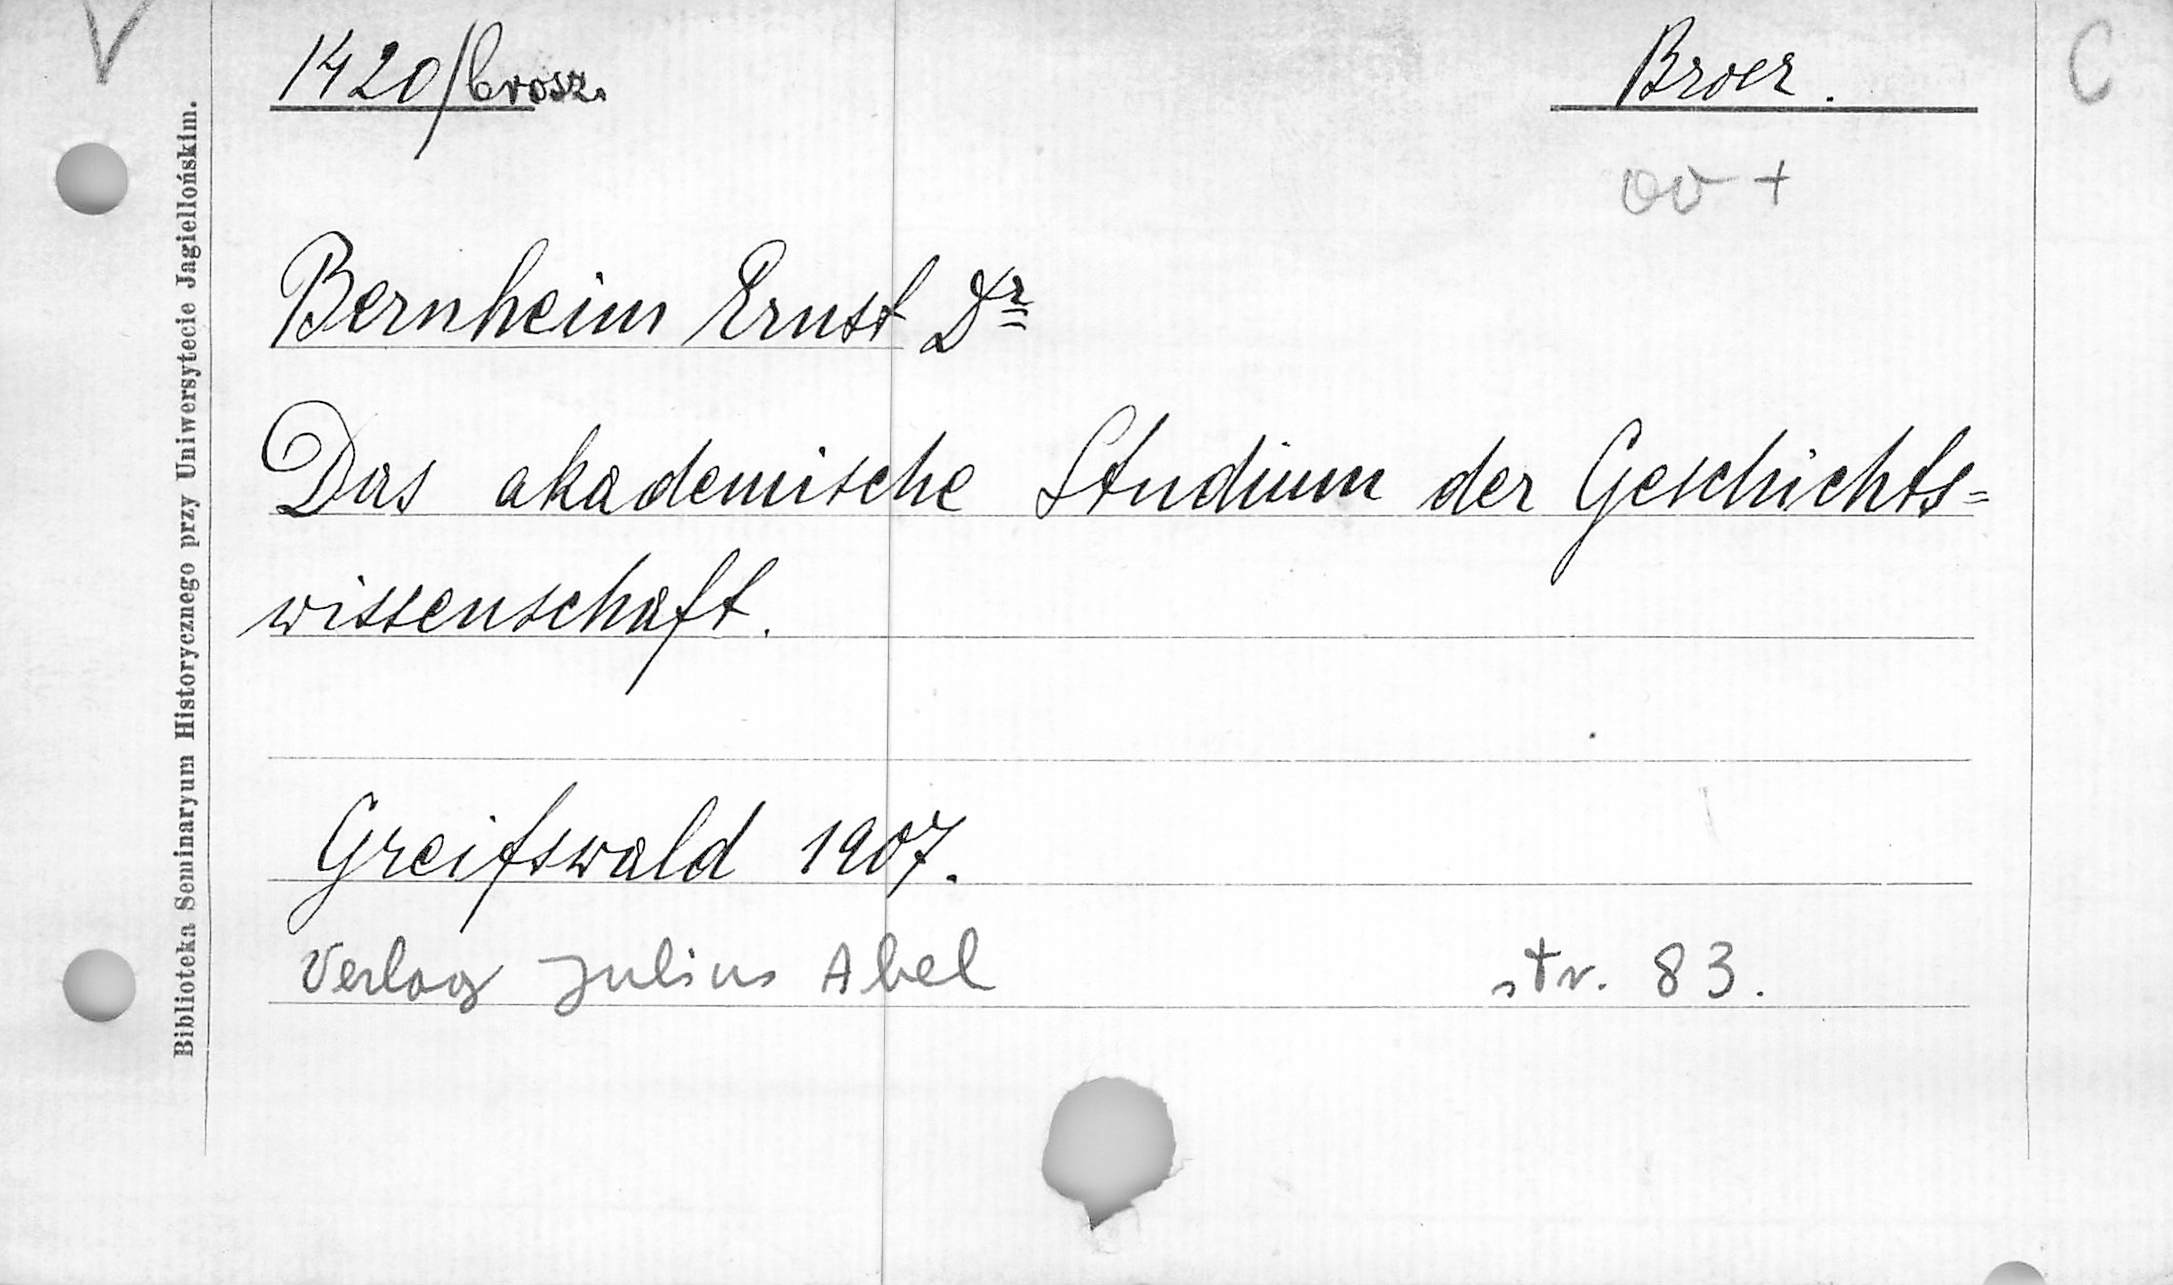 V
1420/brosz.
C
Bernheim Ernst Dr
Das akademische Studium der Geschichts=
wissenschaft.
Greifswald 1907.
Verlag Julius Abel str. 83.
Biblioteka Seminaryum Historycznego przy Uniwersytecie Jagiellońskim.